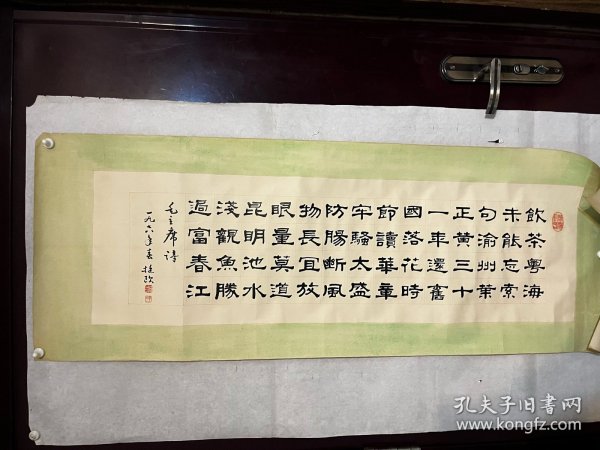 飲茶粵海
未能忘索
句渝州葉
正黄三十
一年還舊
國落花時
節讀華章
牢騷太盛
防腸斷風
物長宜放
眼量莫道
昆明池水
淺觀魚勝
過富春江
毛主席诗
一九六年春
孔夫子旧書网
www.kongfz.com